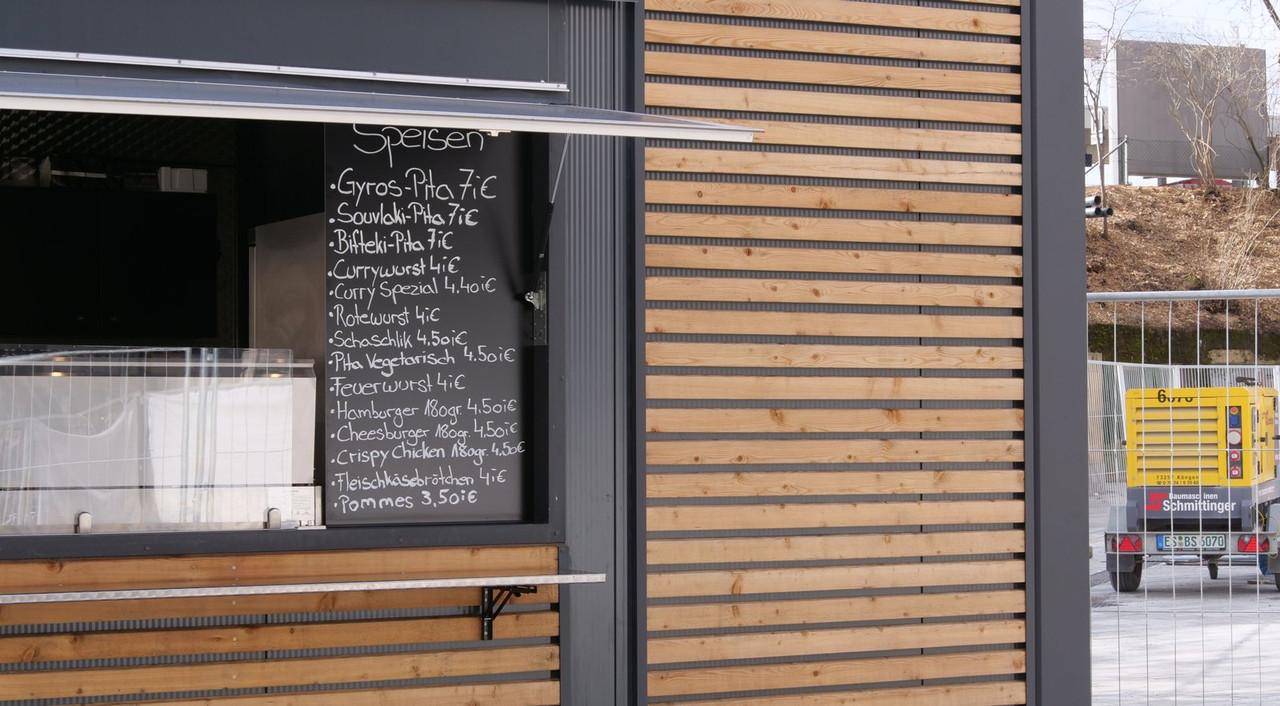 Speisen
•Gyros-Pita 7i€
•Souvlaki-Pita 7i€
•Bifteki-Pita 7i€
•Currywurst 4i€
•Curry Spezial 4.40i€
•Rotewurst 4i€
•Schaschlik 4.50i€
•Pita Vegetarisch 4.50i€
•Feuerwurst 4i€
•Hamburger 180gr. 4.50i€
•Cheesburger 180gr. 4.50i€
•Crispy Chicken 180gr. 4.50€
•Fleischkäsebrötchen 4i€
•Pommes 3,50i€
6070
73257 Köngen
Schmittinger
ES BS 6070